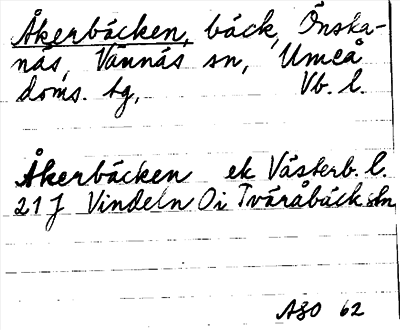 Åkerbäcken, bäck, Önska-
näs, Vännäs sn, Umeå
doms. tg, Vb. l.
Åkerbäcken ek Västerb. l.
21 J Vindeln Oi Tväråbäck sln
ASO 62